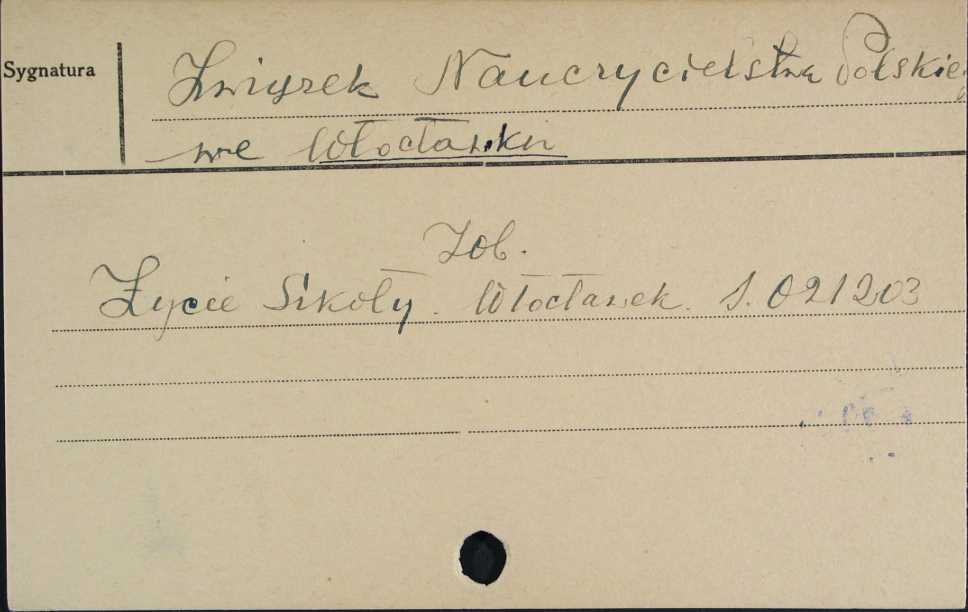 Sygnatura
Związek Nauczycielstwa Polskieg
we Włocławku
Zob.
Życie Szkoły. Włocławek. S. 021203